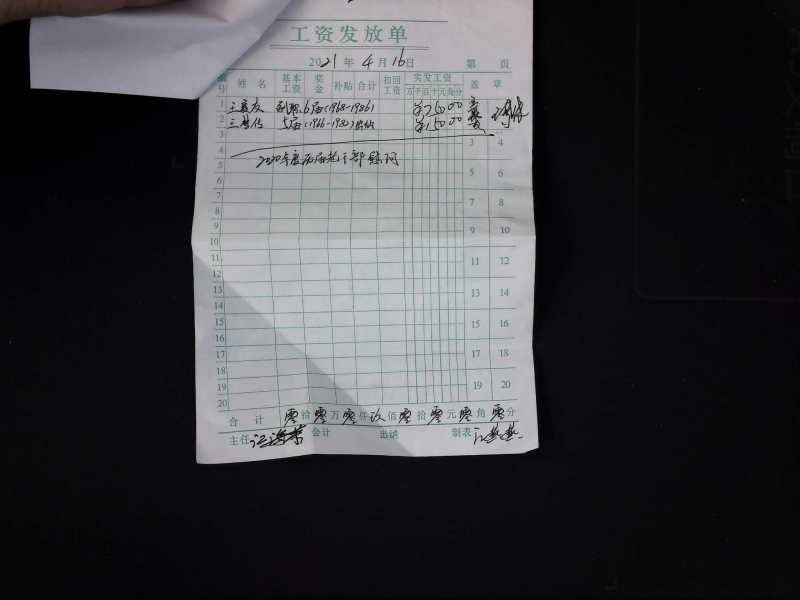 工资发放单
2021年4月16日 第 页
编号 姓名 基本工资 奖金 补贴 合计 扣回工资 实发工资 盖章
万 千 百 十 元 角 分
1 副职6届(1968-1986) ¥750.00
2 5届(1966-1980) ¥150.00
3 3 4
4
5 2020年度历届老干部慰问
6 5 6
7
8 7 8
9
10 9 10
11
12 11 12
13
14 13 14
15
16 15 16
17
18 17 18
19
20 19 20
合计 零拾零万零仟玖佰零拾零元零角零分
主任 会计 出纳 制表